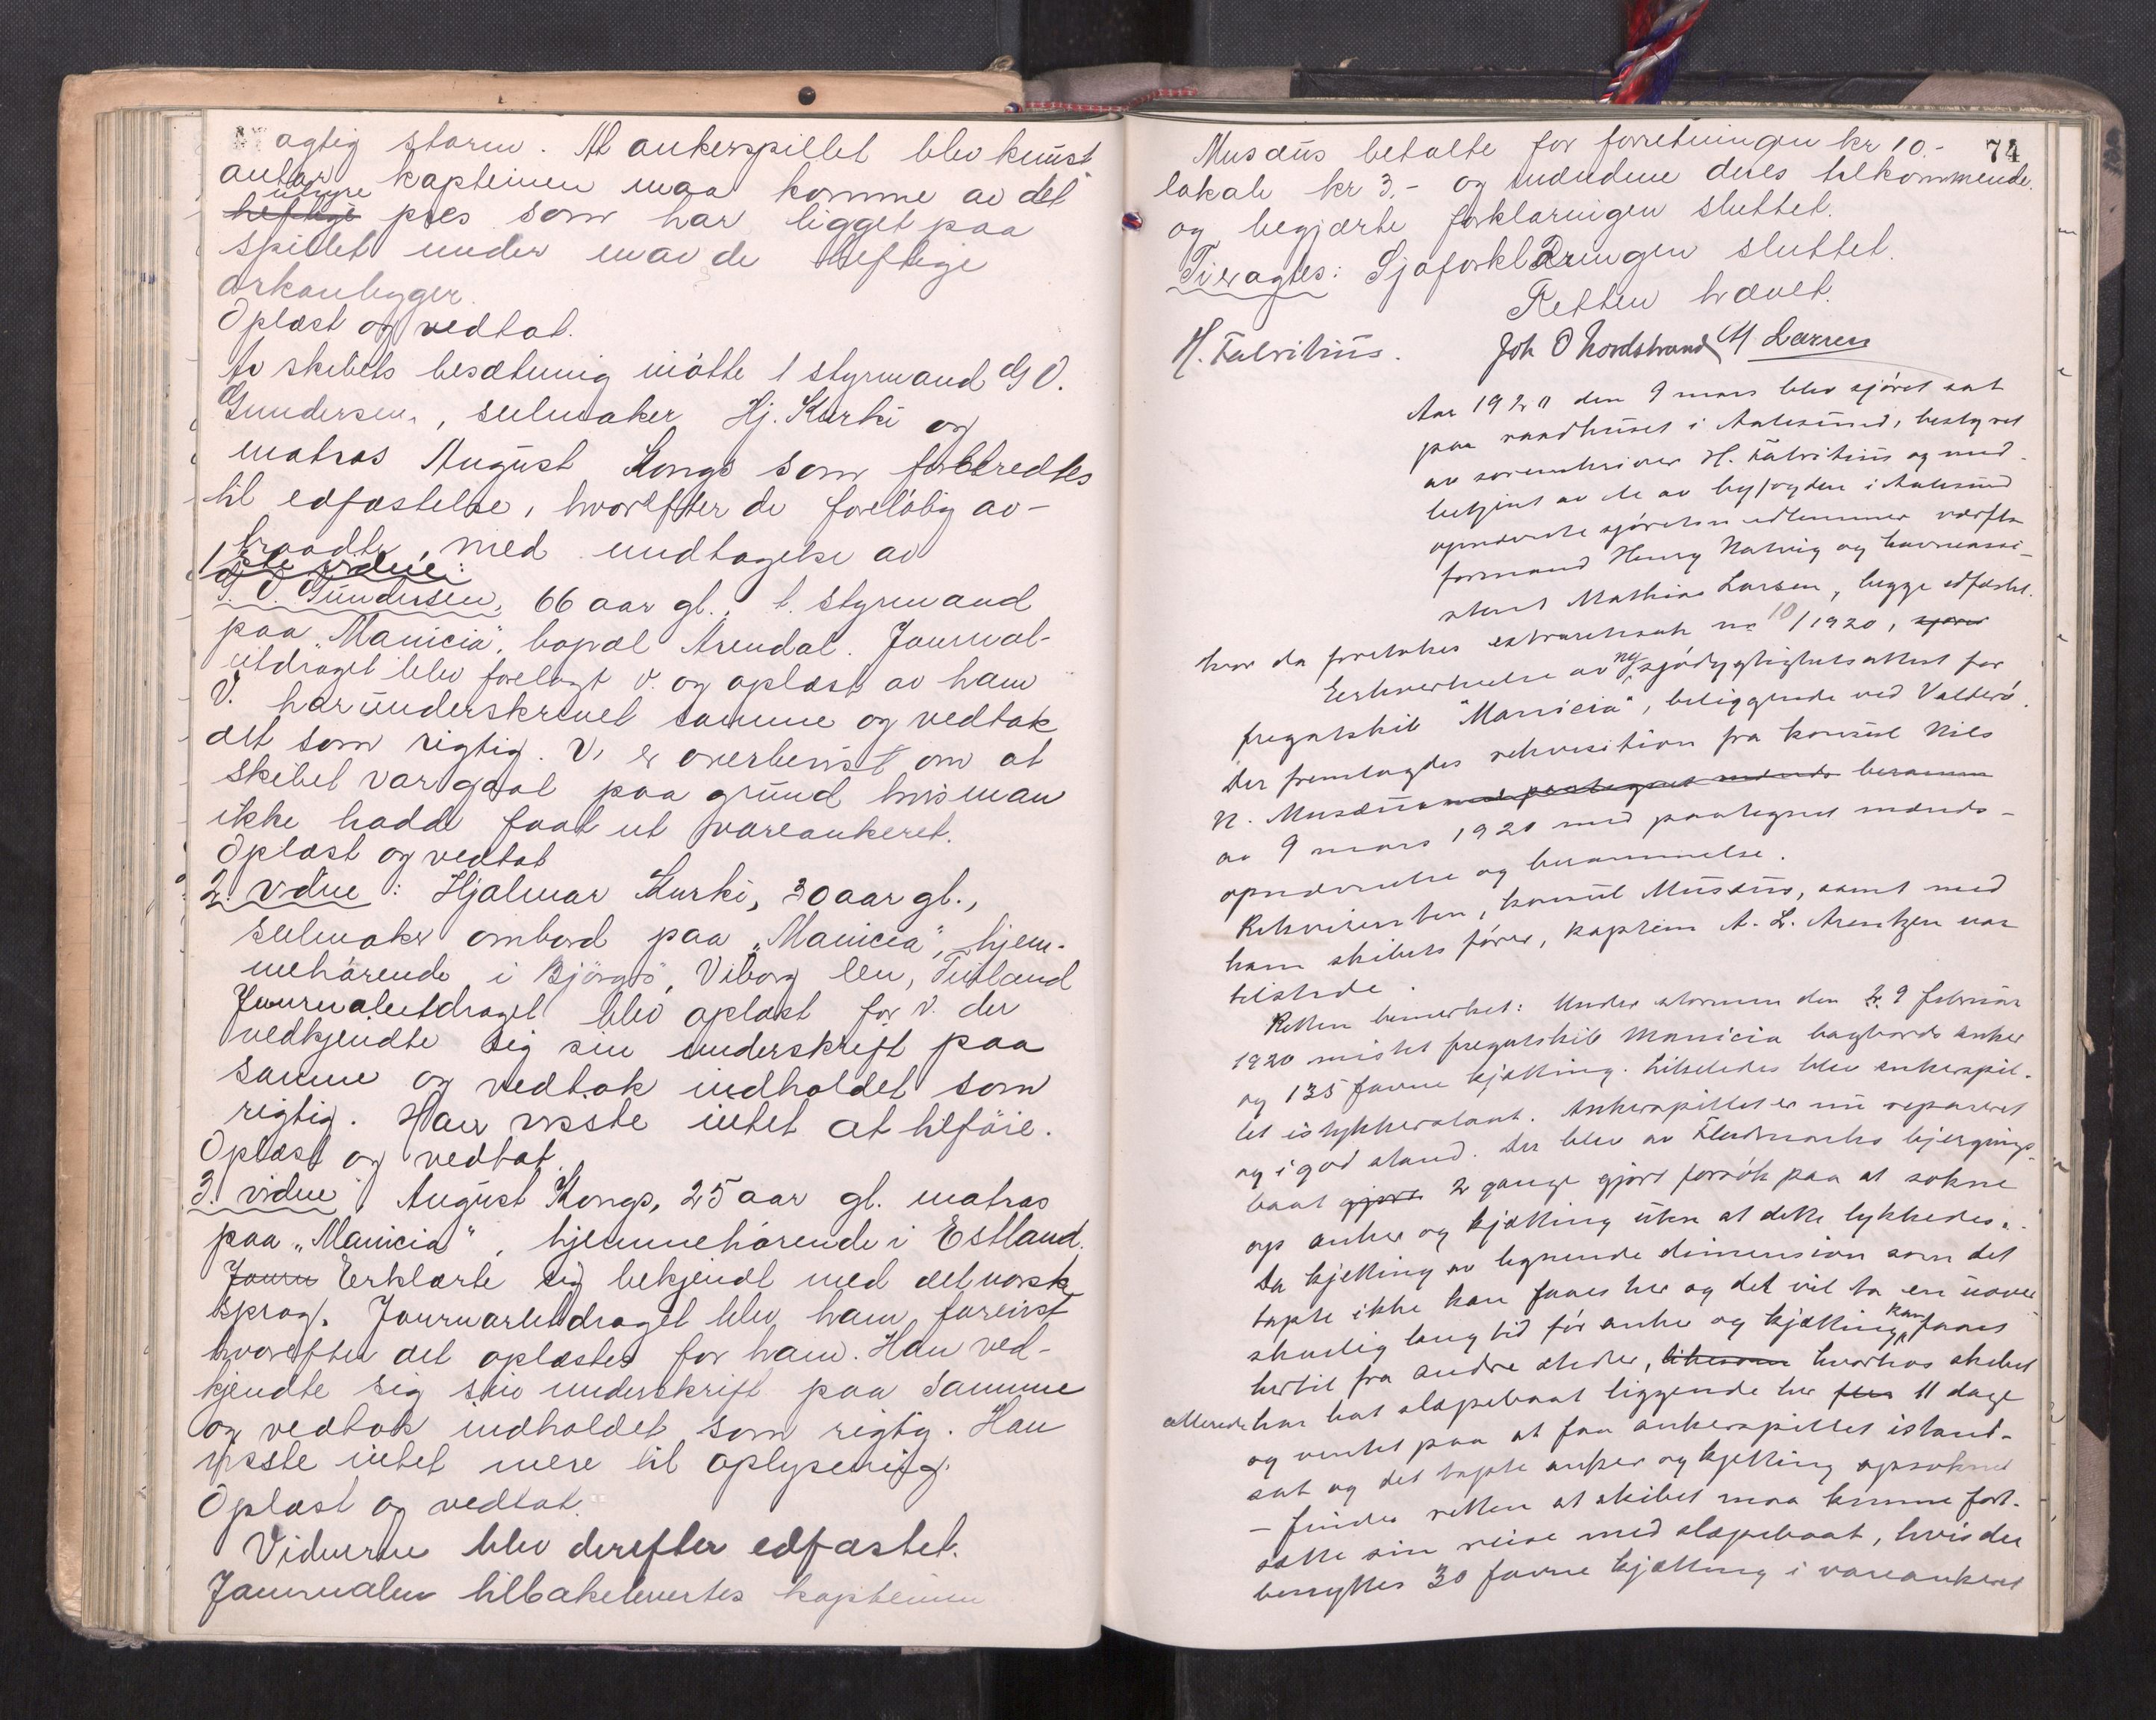 agtig storm. At ankerspillet blev knust
antar kapteinen maa komme av det
uhyre
heftige pres som har ligget paa
spillet under de heftige
orkanbygger.
Oplæst og vedtat.
Av skibets besætning møtte 1 styrmand G O.
Gundersen, seilmaker Hj. Kurki og
matros August Kongs som forberedtes
til edfæstelse, hvorefter de foreløbig av-
traadte, med undtagelse av
1ste vidne:
G. O. Gundersen, 66 aar gl., 1. styrmand
paa "Manicia", bopæl Arendal. Journal-
utdraget blev forelagt v. og oplæst av ham
V. har underskrevet samme og vedtok
det som rigtig. V. er overbevist om at
skibet var gaat paa grund hvis man
ikke hadde faat ut vareankeret.
Oplæst og vedtat
2. vidne: Hjalmar Kurki, 30 aar gl.,
seilmaker ombord paa "Manicia", hjem-
mehørende i Björgö, Viborg len, Finland
Journalutdraget blev oplæst for v. der
vedkjendte sig sin underskrift paa
samme og vedtok indholdet som
rigtig. Han visste intet at tilføie.
Oplæst og vedtat.
3. vidne: August Kongs, 25 aar gl. matros
paa "Manicia", hjemmehørende i Estland.
Journ Erklærte sig bekjendt med det norske
sprog. Journalutdraget blev ham forevist
hvorefter det oplæstes for ham. Han ved-
kjendte sig sin underskrift paa samme
og vedtok indholdet som rigtig. Han
visste intet mere til oplysning.
Oplæst og vedtat.
Vidnerne blev derefter edfæstet.
Journalen tilbakelevertes kapteinen
74
Musæus betalte for forretningen kr 10.-
lokale kr 3.- og mændene deres tilkommende.
og begjærte forklaringen sluttet.
Tiltagtes: Sjøforklaringen sluttet.
Retten hævet.
H. Fabritius. Joh O Nordstrand M Larsen
Aar 1920 den 9 mars blev sjøret sat
paa raadhuset i Aalesund, bestyret
av sorenskriver H. Fabritius og med-
betjent av de av byfogden i Aalesund
opnævnte sjøretsmedlemmer værfts-
formand Henry Natvig og havneassi-
stent Mathias Larsen, begge edfæstet.
hvor da foretokes extraretssak no 10/1920, sjøret
Erhvervelse av ny sjødygtighetsattest for
fregatskib "Manicia", beliggende ved Valderø.
Der fremlagdes rekvisition fra konsul Nils
N. Musæus med paategnet mænds beramm
av 9 mars 1920 med paategnet mænds-
opnævnelse og berammelse.
Rekvirenten, konsul Musæus, samt med
ham skibets fører, kaptein A. L. Arentzen var
tilstede.
Retten bemerket: Under stormen den 29 februar
1920 mistet fregatskib Manicia bagbords anker
og 135 favne kjetting. Likeledes blev ankerspil-
let istykkerslaat. Ankerspillet er nu reparert
og i god stand. Der blev av Flodmarks bjergnings-
baat gjort 2 gange gjort forsøk paa at sokne
op anker og kjetting uten at dette lykkedes.
Da kjetting av lignende dimension som det
tapte ikke kan faaes her og det vil ta en uover-
skuelig lang tid før anker og kjetting kan faaes
hertil fra andre steder, likesom hvorhos skibet
allerede har hat slæpebaat liggende her flere 11 dage
og ventet paa at faa ankerspillet istand-
sat og det tapte anker og kjetting opsoknet
- finder retten at skibet maa kunne fort-
sætte sin reise med slæpebaat, hvis der
benyttes 30 favne kjetting i vareankeret